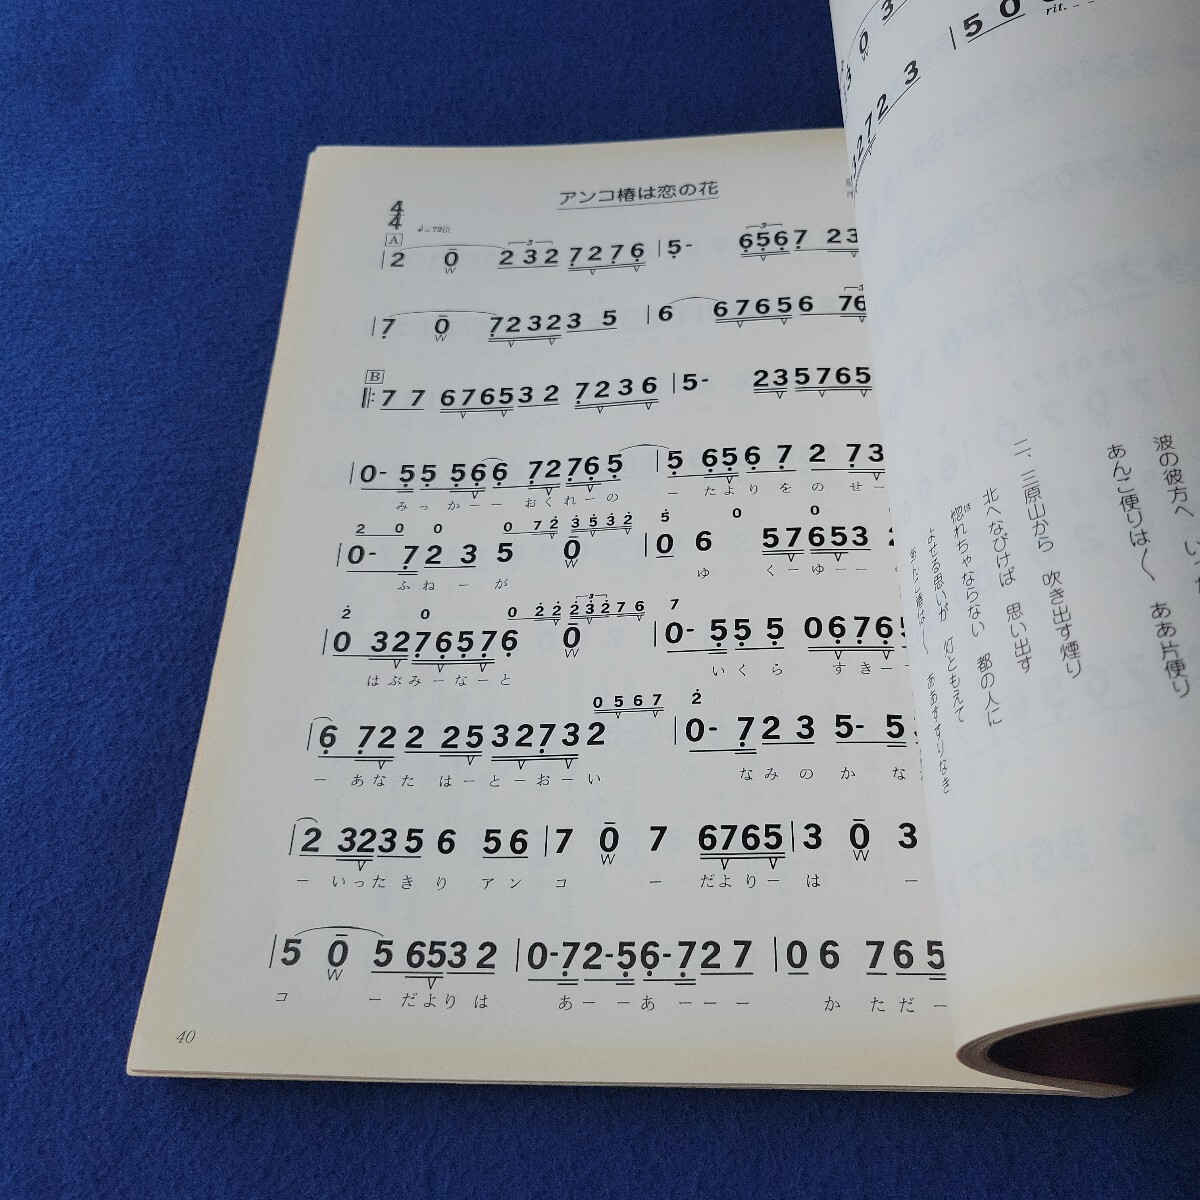 アンコ椿は恋の花
4/4
♩=72位
A
|2 0 232 7276|5- 6567 23
W
|7 0 72323 5 |6 67656 76
W
B
‖:77 6765 32 7236|5- 235765
|0-55 566 72765|5 656 7 2 73
みっかーー おくれーの ーたよりをのせー
2 0 0 0 72 3532 5 0 0
|0-723 5 0 |0 6 57653
ふねーが ゆ くーゆーー
2 0 0 22 23276 7
|0 3276576 0 |0-555 0676
はぶみーなーと いくら すきー
0567 2
|6 722 25 32732 |0-723 5-5
ーあなた はーとーおーい なみのかな
|2 3235 6 56|7 0 7 6765|3 0 3
ーいったきり アンコ ーだよりーは ー
|5 0 5 6532|0-72-56-727|0 6 765
コ ーだよりは あーーあーーー かただー
40
rit.
|50
波の彼方へ
あんこ便りは〱 ああ片便り
二、三原山から 吹き出す煙り
北へなびけば 思い出す
惚れちゃならない 都の人に
よせる思いが 灯ともえて
ああすすりなき